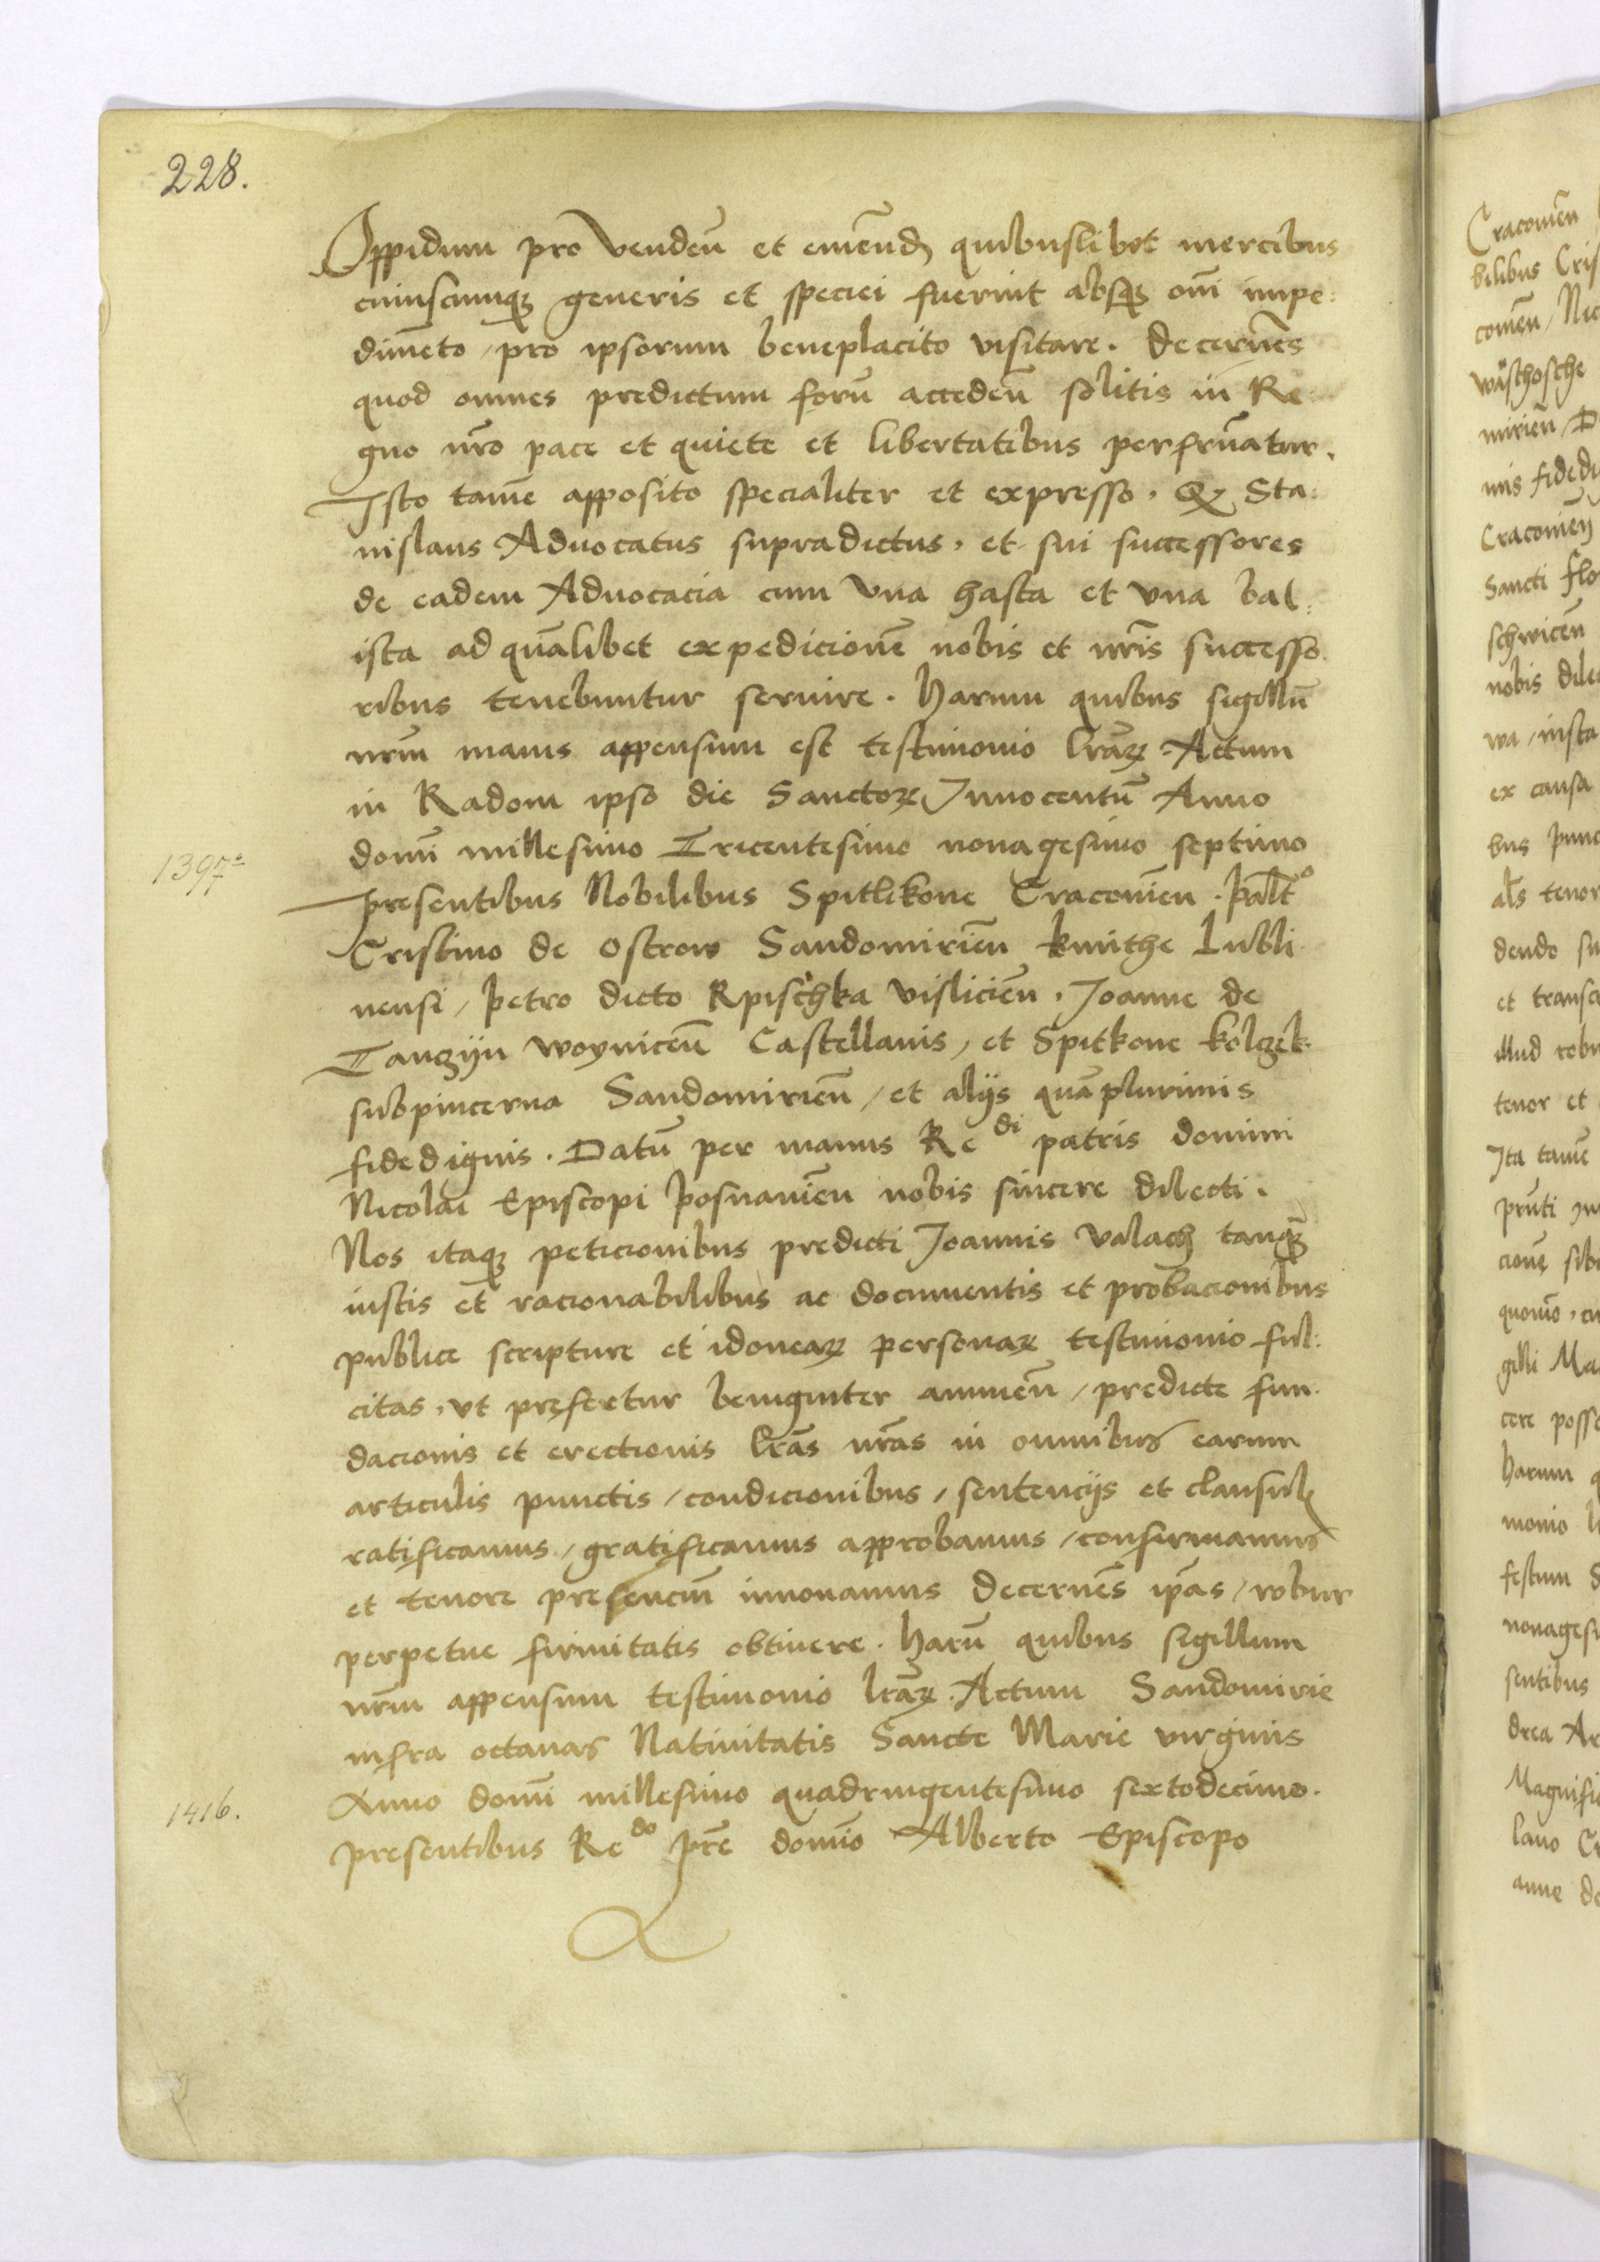 228.
Oppidum pro vendeñ et emēnd quibuslibet mercibus
cuiuscunqz generis et speciei fuerint absqz om̄i impe:
dimēto / pro ipsorum beneplacito visitare. decernēs
quod omnes predictum forū accedeñ solitis in Re
gno nr̄o pace et quiete et libertatibus perfruātur.
Isto tamē apposito specialiter et expresso. Qz Sta:
nislaus Aduocatus supradictus, et sui successores
de eadem Aduocacia cum vna hasta et vna bal:
ista ad quālibet expedicionē nobis et nr̄is successo
ribus tenebuntur seruire. harum quibus sigillū
nr̄m maius appensum est testimonio lr̄aꝝ Actum
in Radom ipso die Sanctoꝝ Innocentū Anno
domī millesimo Tricentesimo nonagesimo septimo
1397º
presentibus Nobilibus Spitlikone Cracouien̄. Palt̄º
Cristino de Ostrow Sandomirien̄ kmithe Lubli
nensi / petro dicto Rpischka vislicien̄. Joanne de
Tanczijn woynicen̄ Castellanis, et Spitkone kolczek
subpincerna Sandomirien̄ / et alijs quāplurimis
fidedignis. Datū per manus Reᵈⁱ patris domini
Nicolai Episcopi posnanien̄ nobis sincere dilecti.
Nos itaqz peticionibus predicti Joannis valach tanqz
iustis et racionabilibus ac documentis et probacionibus
publice scripture et idoneaꝝ personaꝝ testimonio ful:
citas, vt prefertur benigniter annuen̄ / predicte fun
dacionis et erectionis lr̄as nr̄as in omnibus earum
articulis punctis / condicionibus, sentencijs et clausul
ratificamus, gratificamus approbamus / confirmamus
et tenore presenciū innouamus decernēs ip̄as / robur
perpetue firmitatis obtinere. harū quibus sigillum
nr̄m appensum testimonio lr̄aꝝ. Actum Sandomirie
infra octauas Natiuitatis Sancte Marie virginis
Anno domī millesimo quadringentesimo sextodecimo.
1416.
presentibus Reᵈº pr̄e domīo Alberto Episcopo
Cracouien̄
bilibus Cris
couien̄ / Nic
waschosche
mirien̄ / D
nis fidedi
Cracouien̄
Sancti Flo
schwicen̄
nobis dilec
wa / insta
ex causa
bus punc
al̄s tenor
dendo su
et transc
illud robu
tenor et
Ita tamē
pr̄nti
cionē sibi
quomō, cu
gilli Ma
cere posse
harum q
monio l
festum d
nonagesi
sentibus
drea Ar
Magnifi
lauo Cr
anne de